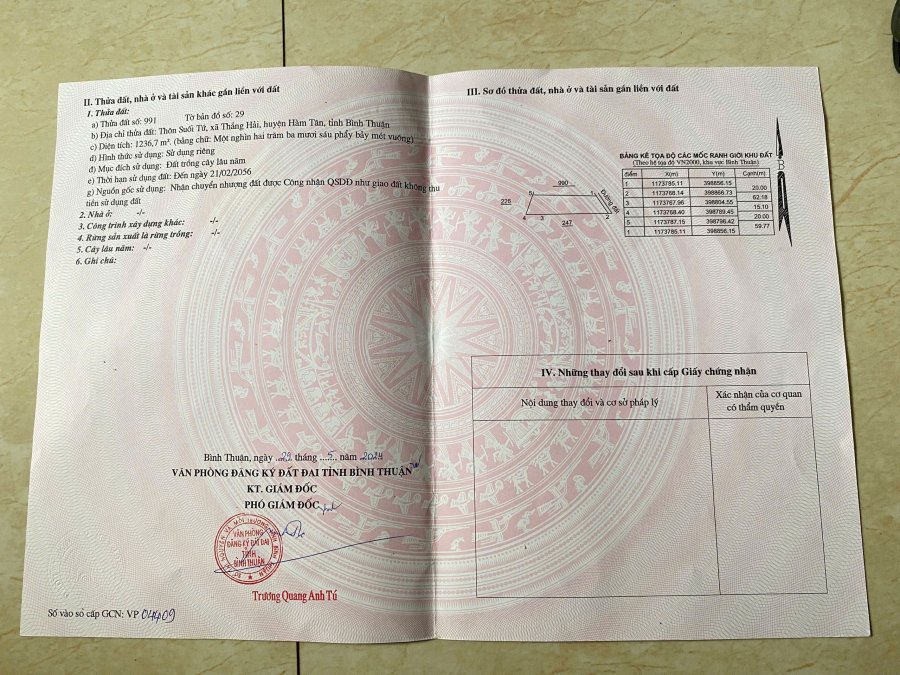 II. Thửa đất, nhà ở và tài sản khác gắn liền với đất
1. Thửa đất:
a) Thửa đất số: 991 Tờ bản đồ số: 29
b) Địa chỉ thửa đất: Thôn Suối Tứ, xã Thắng Hải, huyện Hàm Tân, tỉnh Bình Thuận
c) Diện tích: 1236,7 m². (bằng chữ: Một nghìn hai trăm ba mươi sáu phẩy bảy mét vuông)
d) Hình thức sử dụng: Sử dụng riêng
đ) Mục đích sử dụng: Đất trồng cây lâu năm
e) Thời hạn sử dụng đất: Đến ngày 21/02/2056
g) Nguồn gốc sử dụng: Nhận chuyển nhượng đất được Công nhận QSDĐ như giao đất không thu
tiền sử dụng đất
2. Nhà ở: -/-
3. Công trình xây dựng khác: -/-
4. Rừng sản xuất là rừng trồng: -/-
5. Cây lâu năm: -/-
6. Ghi chú:
Bình Thuận, ngày 29 tháng 5 năm 2024
VĂN PHÒNG ĐĂNG KÝ ĐẤT ĐAI TỈNH BÌNH THUẬN
KT. GIÁM ĐỐC
PHÓ GIÁM ĐỐC
VĂN PHÒNG
ĐĂNG KÝ ĐẤT ĐAI
TỈNH
BÌNH THUẬN
Trương Quang Anh Tú
Số vào sổ cấp GCN: VP 04409
III. Sơ đồ thửa đất, nhà ở và tài sản gắn liền với đất
990
225
247
5
1
4
3
2
Đường đất
B
BẢNG KÊ TỌA ĐỘ CÁC MỐC RANH GIỚI KHU ĐẤT
(Theo hệ tọa độ VN2000, khu vực Bình Thuận)
điểm X(m) Y(m) Cạnh(m)
1 1173785.11 398856.15
20.00
2 1173768.14 398866.73
62.18
3 1173767.96 398804.55
15.10
4 1173768.40 398789.45
20.00
5 1173787.15 398796.42
59.77
1 1173785.11 398856.15
IV. Những thay đổi sau khi cấp Giấy chứng nhận
Nội dung thay đổi và cơ sở pháp lý
Xác nhận của cơ quan
có thẩm quyền